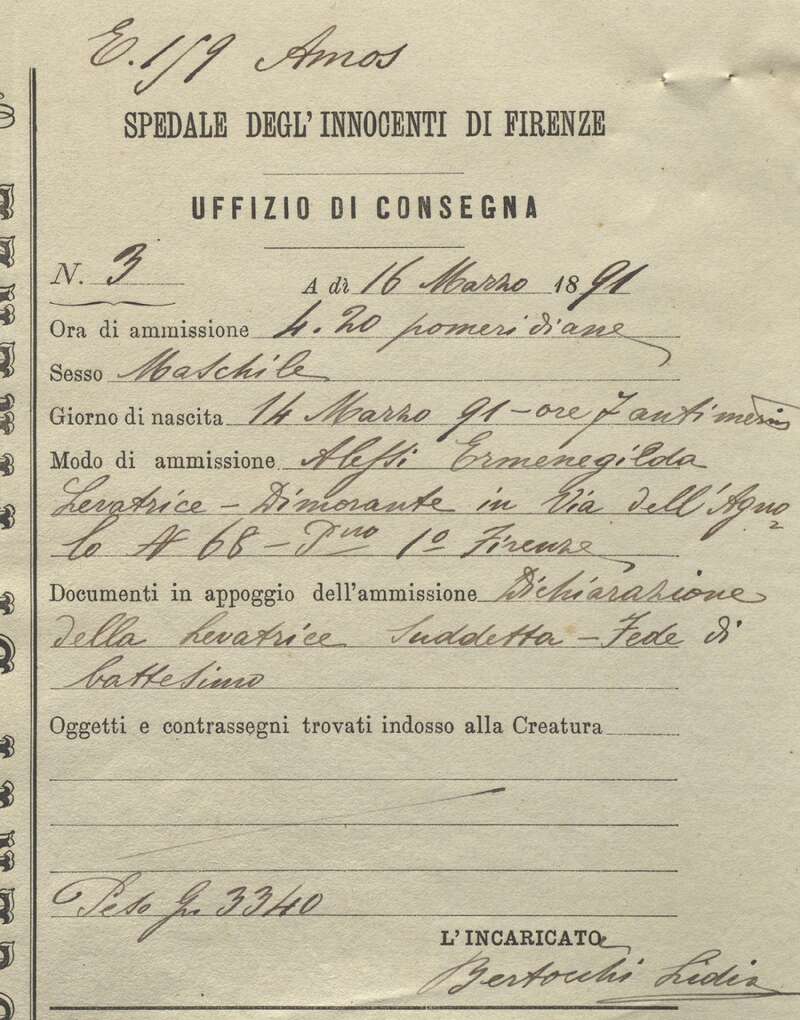 E. 159 Amos
SPEDALE DEGL'INNOCENTI DI FIRENZE
UFFIZIO DI CONSEGNA
N. 3 A dì 16 Marzo 1891
Ora di ammissione 4.20 pomeridiane
Sesso Maschile
Giorno di nascita 14 Marzo 91 - ore 7 antimerine
Modo di ammissione Alessi Ermenegilda
Levatrice - Dimorante in Via dell'Agno=
lo N 68 - Pno 1º Firenze
Documenti in appoggio dell'ammissione Dichiarazione
della Levatrice Suddetta - Fede di
battesimo
Oggetti e contrassegni trovati indosso alla Creatura
Peso Gr. 3340
L'INCARICATO
Bertocchi Lidia